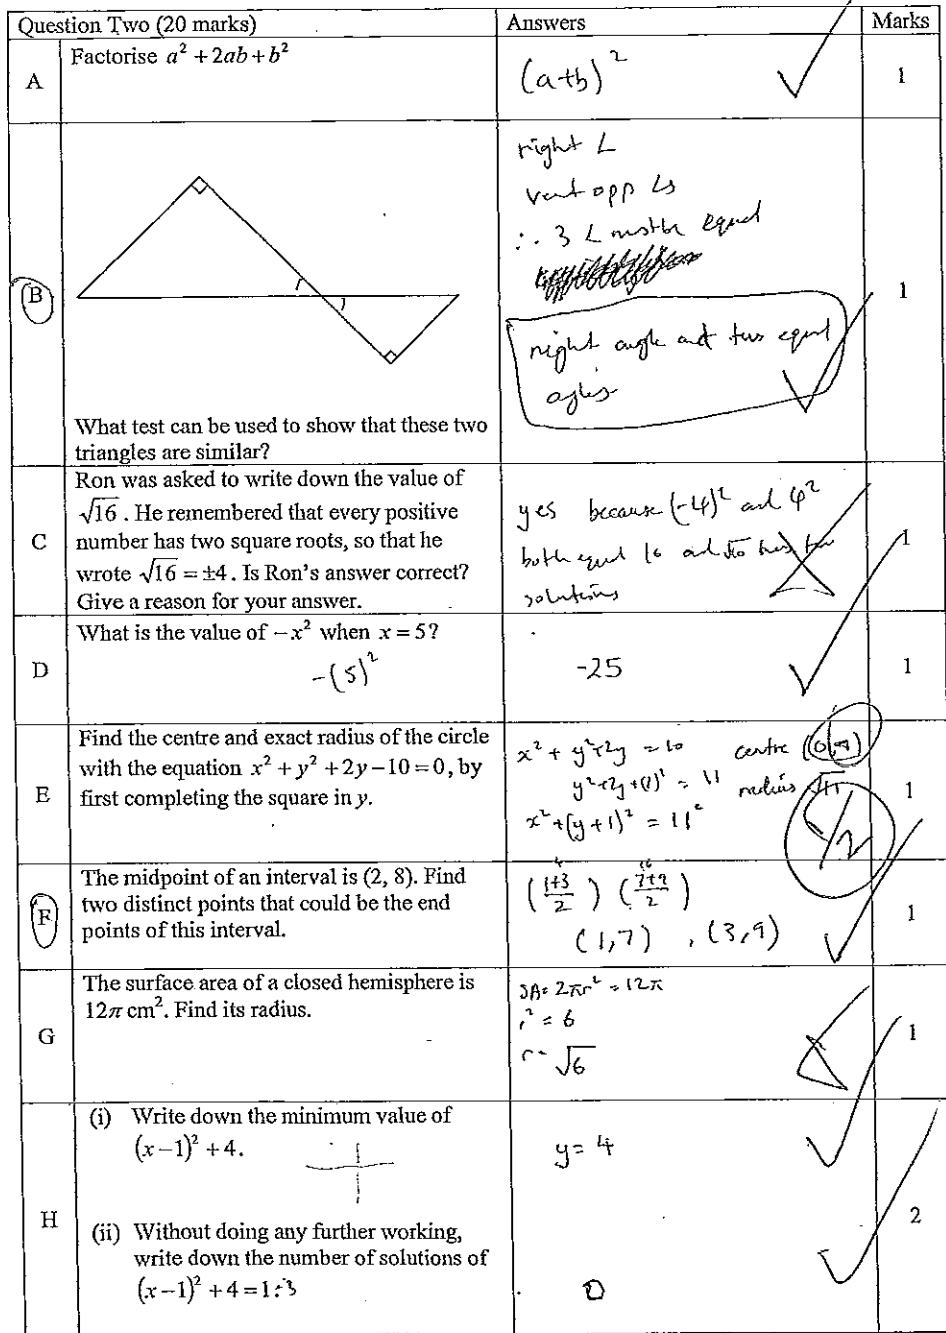 Question Two (20 marks) Answers Marks
A Factorise a² + 2ab + b² (a+b)² 1
right ∠
vert opp ∠s
∴ 3 ∠ must be equal
B 1
right angle and two equal
angles
What test can be used to show that these two
triangles are similar?
C Ron was asked to write down the value of
√16 . He remembered that every positive
number has two square roots, so that he
wrote √16 = ±4. Is Ron's answer correct?
Give a reason for your answer.
yes because (-4)² and 4²
both equal 16 and √16 has two
solutions
1
D What is the value of −x² when x = 5?
-(5)²
-25
1
E Find the centre and exact radius of the circle
with the equation x² + y² + 2y − 10 = 0, by
first completing the square in y.
x² + y²+2y = 10 centre
y²+2y+(1)² = 11 radius √11
x²+(y+1)² = 11²
1
F The midpoint of an interval is (2, 8). Find
two distinct points that could be the end
points of this interval.
4 16
(1+3/2) (7+9/2)
(1,7) , (3,9)
1
G The surface area of a closed hemisphere is
12π cm². Find its radius.
SA = 2πr² = 12π
r² = 6
r = √6
1
H (i) Write down the minimum value of
(x−1)² + 4.
y = 4
2
(ii) Without doing any further working,
write down the number of solutions of
(x−1)² + 4 = 1
0